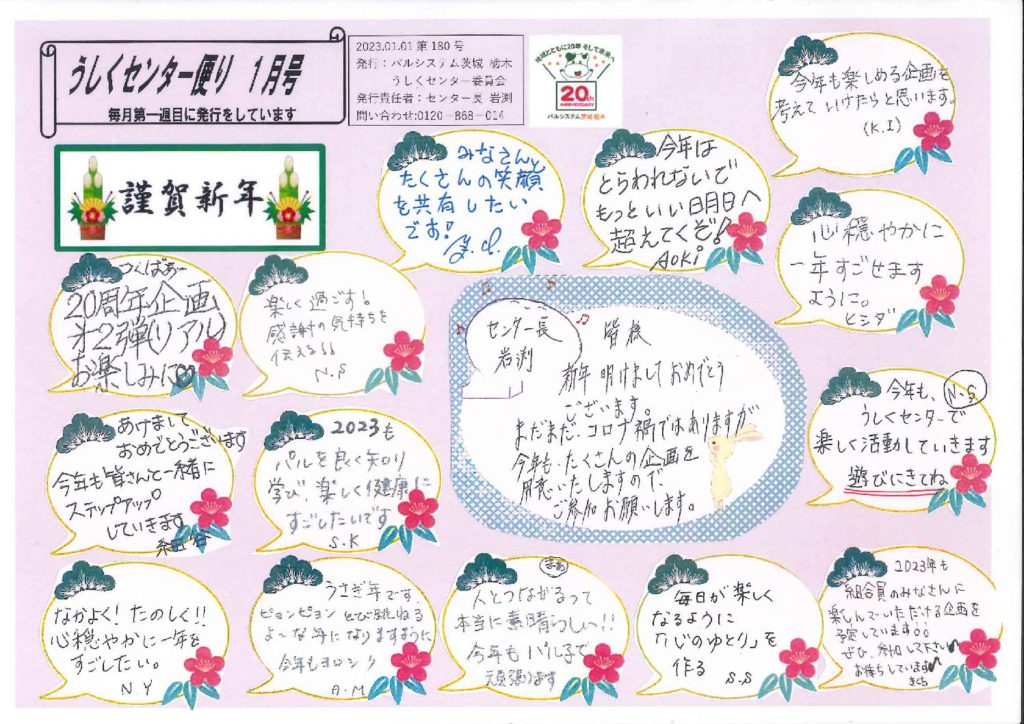 うしくセンター便り 1月号
毎月第一週目に発行をしています
2023.01.01 第180号
発行：パルシステム茨城 栃木
うしくセンター委員会
発行責任者：センター長 岩渕
問い合わせ:0120-868-014
地域とともに20年 そして未来へ
20th
ANNIVERSARY
パルシステム茨城 栃木
今年も楽しめる企画を
考えていけたらと思います。
(K.I)
謹賀新年
みなさんと
たくさんの笑顔
を共有したい
です!
今年は
とらわれないで
もっといい日月日へ
超えてくぞ!
AOKi
心穏やかに
一年すごせます
ように。
ヒシダ
つくばぁー
20周年企画
第2弾(リアル)
お楽しみに♡
楽しく過ごす!
感謝の気持ちを
伝える!!
N.S
センター長
岩渕
皆様
新年 明けまして おめでとう
ございます。
まだまだ、コロナ禍ではありますが
今年も、たくさんの企画を
用意いたしますので
ご参加お願いします。
今年も、N.S
うしくセンターで
楽しく活動していきます
遊びにきてね
あけまして、
おめでとうございます
今年も皆さんと一緒に
ステップアップ
していきます
細谷
2023も
パルを良く知り
学び、楽しく健康に
すごしたいです
S.K
なかよく! たのしく!!
心穏やかに一年を
すごしたい。
N Y
うさぎ年です
ピョンピョンとび跳ねる
よ〜な年になりますように
今年もヨロシク
A.M
さあ
人とつながるって
本当に素晴らしい!!
今年もパル子で
頑張ります
毎日が楽しく
なるように
「心のゆとり」を
作る S.S
2023年も
組合員のみなさんに
楽しんでいただける企画を
予定しています。
ぜひ、参加して下さい
お待ちしています
さくら